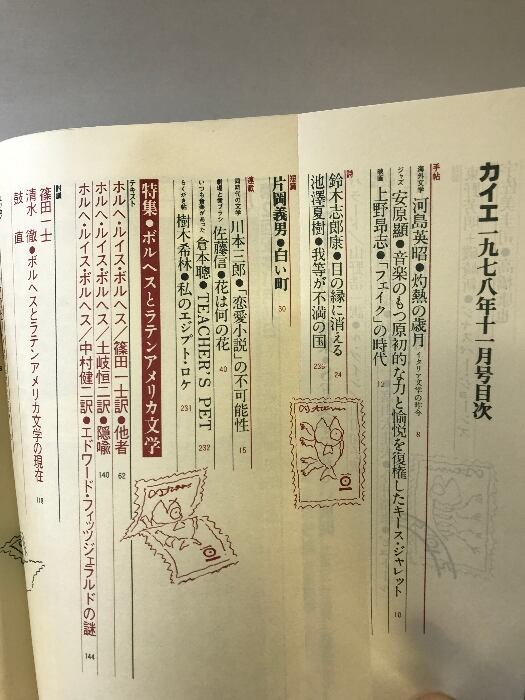 カイエ一九七八年十一月号目次
手帖
海外文学 河島英昭●灼熱の歳月 イタリア文学の昨今 8
ジャズ 安原顯●音楽のもつ原初的な力と愉悦を復権したキース・ジャレット 10
映画 上野昻志●「フェイク」の時代 12
詩
鈴木志郎康●日の縁に消える 24
池澤夏樹●我等が不満の国 236
短篇
片岡義男●白い町 50
連載
同時代の文学 川本三郎●「恋愛小説」の不可能性 15
劇場と抜ブラシ 佐藤信●花は何の花 40
いつも音楽があった 倉本聰●TEACHER'S PET 232
らくがき帖 樹木希林●私のエジプト・ロケ 231
特集●ボルヘスとラテンアメリカ文学
テキスト
ホルヘ・ルイス・ボルヘス/篠田一士訳●他者 62
ホルヘ・ルイス・ボルヘス/土岐恒二訳●隠喩 140
ホルヘ・ルイス・ボルヘス/中村健二訳●エドワード・フィッツジェラルドの謎 144
討議
篠田一士
清水徹●ボルヘスとラテンアメリカ文学の現在 118
鼓直